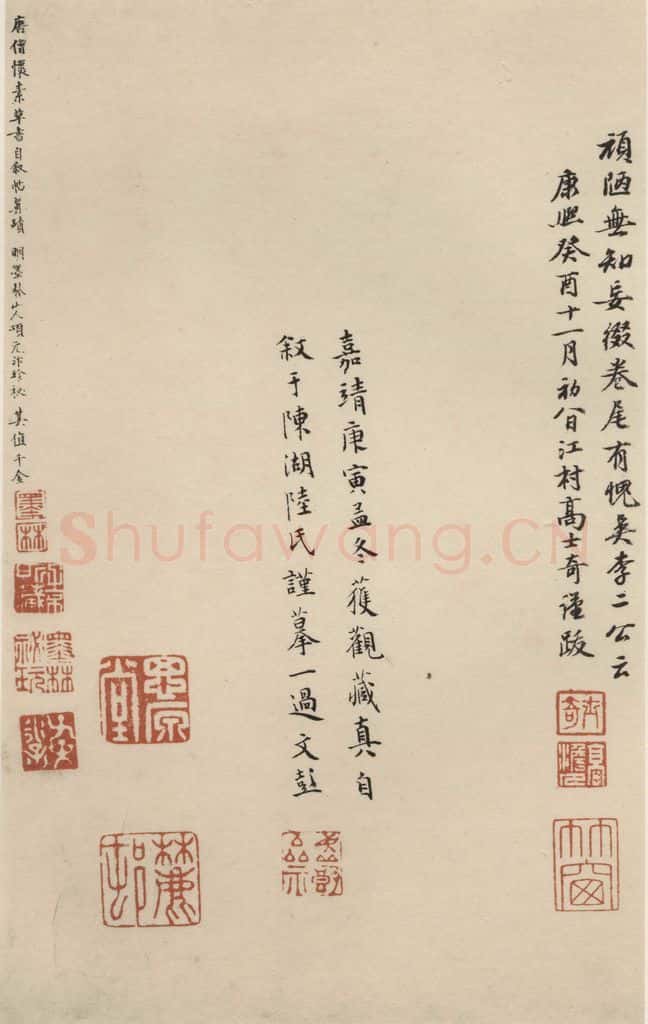 頑陋無知妄綴卷尾有愧吳李二公云
康熙癸酉十一月初八日江村高士奇謹跋
士奇
竹窗
嘉靖庚寅孟冬獲觀藏真自
敘于陳湖陸氏謹摹一過文彭
唐僧懷素草書自敘帖真蹟 明墨林山人項元汴珍秘 其值千金
墨林
墨林秘玩
Shufawang.CN